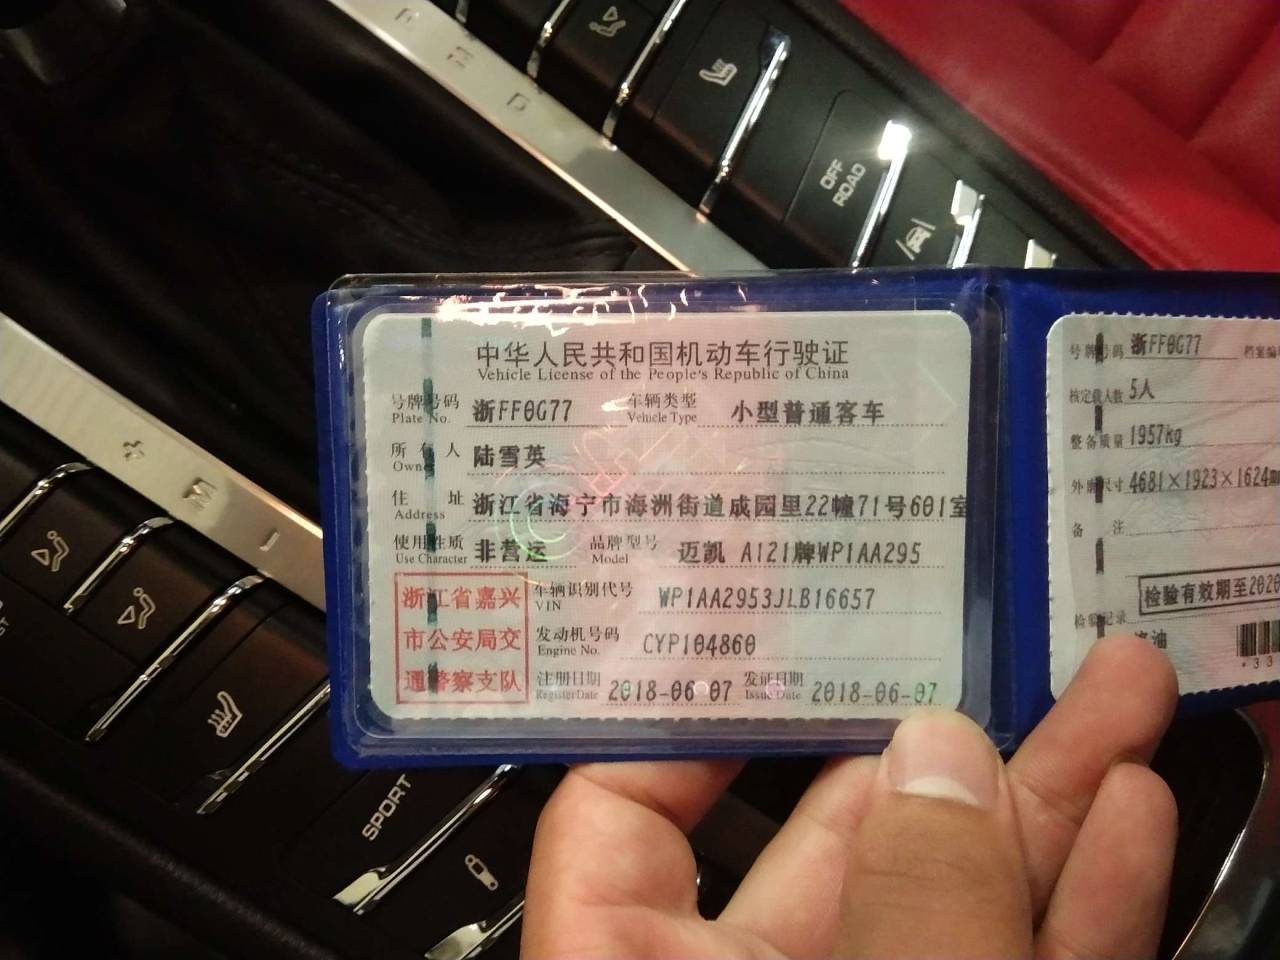 R
N
D
OFF
ROAD
+
M
-
SPORT
中华人民共和国机动车行驶证
Vehicle License of the People's Republic of China
号牌号码 浙FF0G77 车辆类型 小型普通客车
Plate No. Vehicle Type
所有人 陆雪英
Owner
住址 浙江省海宁市海洲街道成园里22幢71号601室
Address
使用性质 非营运 品牌型号 迈凯 A121牌WP1AA295
Use Character Model
浙江省嘉兴
市公安局交
通警察支队
车辆识别代号 WP1AA2953JLB16657
VIN
发动机号码 CYP104860
Engine No.
注册日期 2018-06-07 发证日期 2018-06-07
Register Date Issue Date
号牌号码 浙FF0G77 档案编
核定载人数 5人
整备质量 1957kg
外廓尺寸 4681×1923×1624
备注
检验有效期至2020
检验记录
油
*33